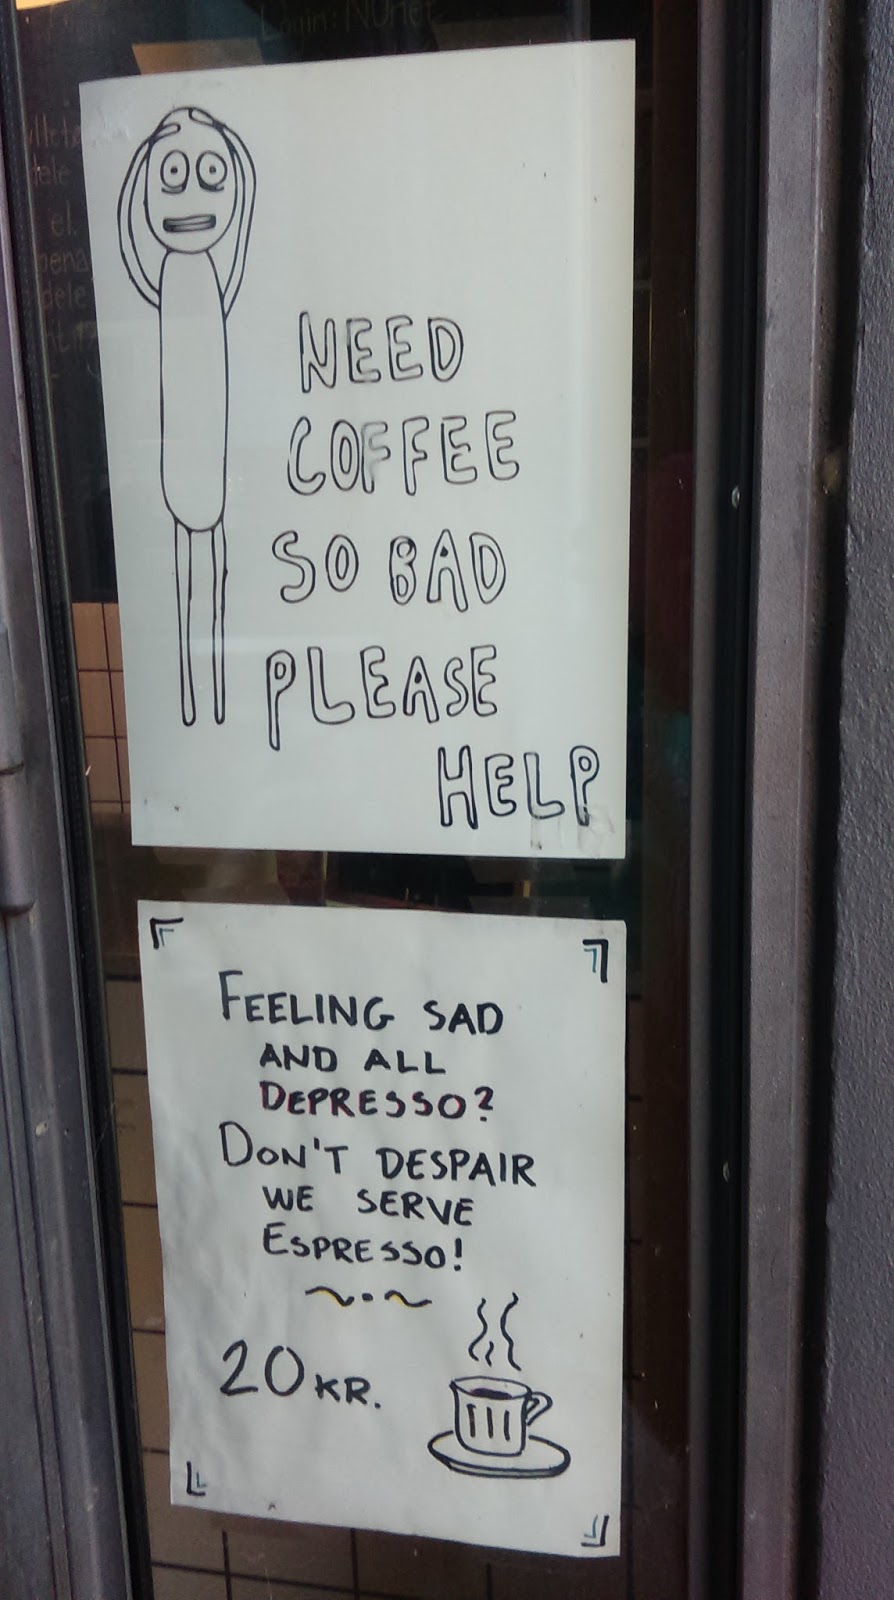 Login: NUnet
NEED
COFFEE
SO BAD
PLEASE
HELP
FEELING SAD
AND ALL
DEPRESSO?
DON'T DESPAIR
WE SERVE
ESPRESSO!
20 KR.